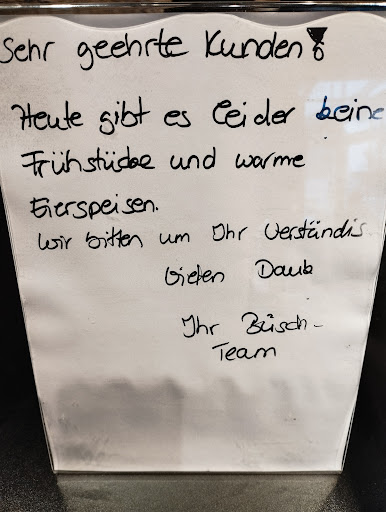 Sehr geehrte Kunden!
Heute gibt es leider keine
Frühstücke und warme
Eierspeisen.
Wir bitten um Ihr Verständis
Vielen Dank
Ihr Büsch-
Team